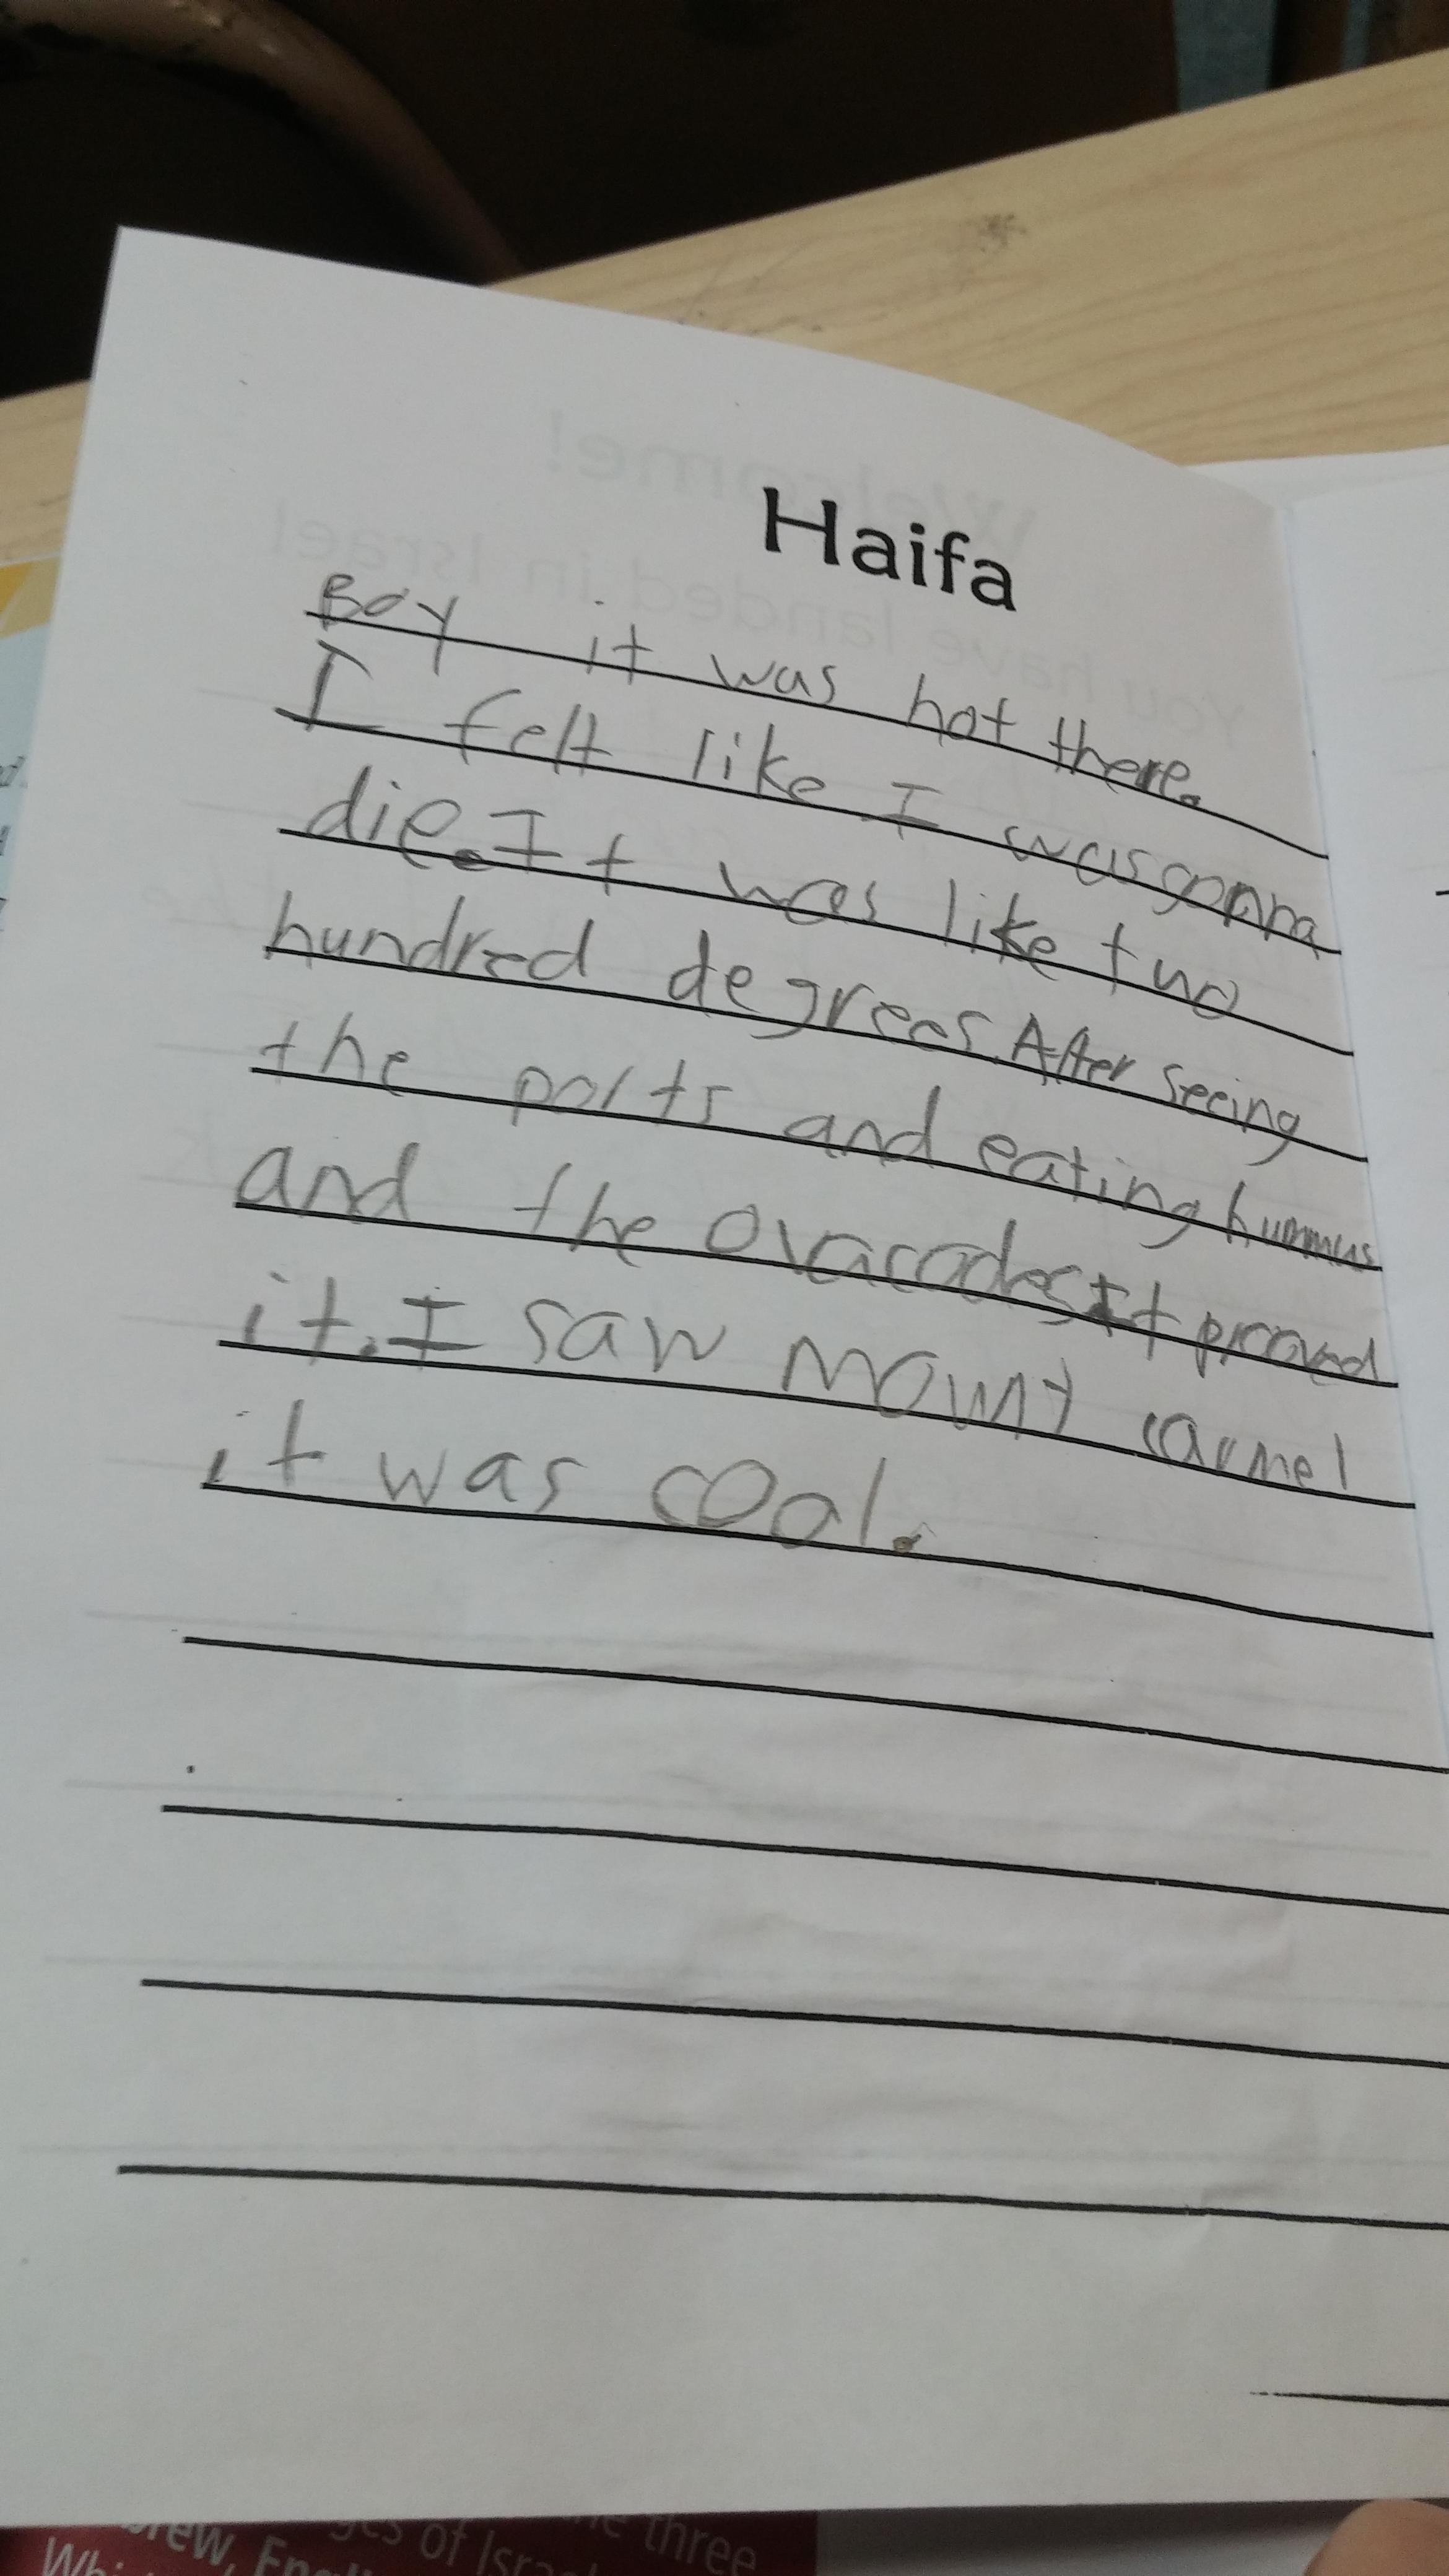 Haifa
Boy it was hot there.
I felt like I was gonna
die. It was like two
hundred degrees. After seeing
the ports and eating hummus
and the ovacados It prooved
it. I saw mount carmel
it was cool.
Welcome!
You have landed in Israel
of Isra
three